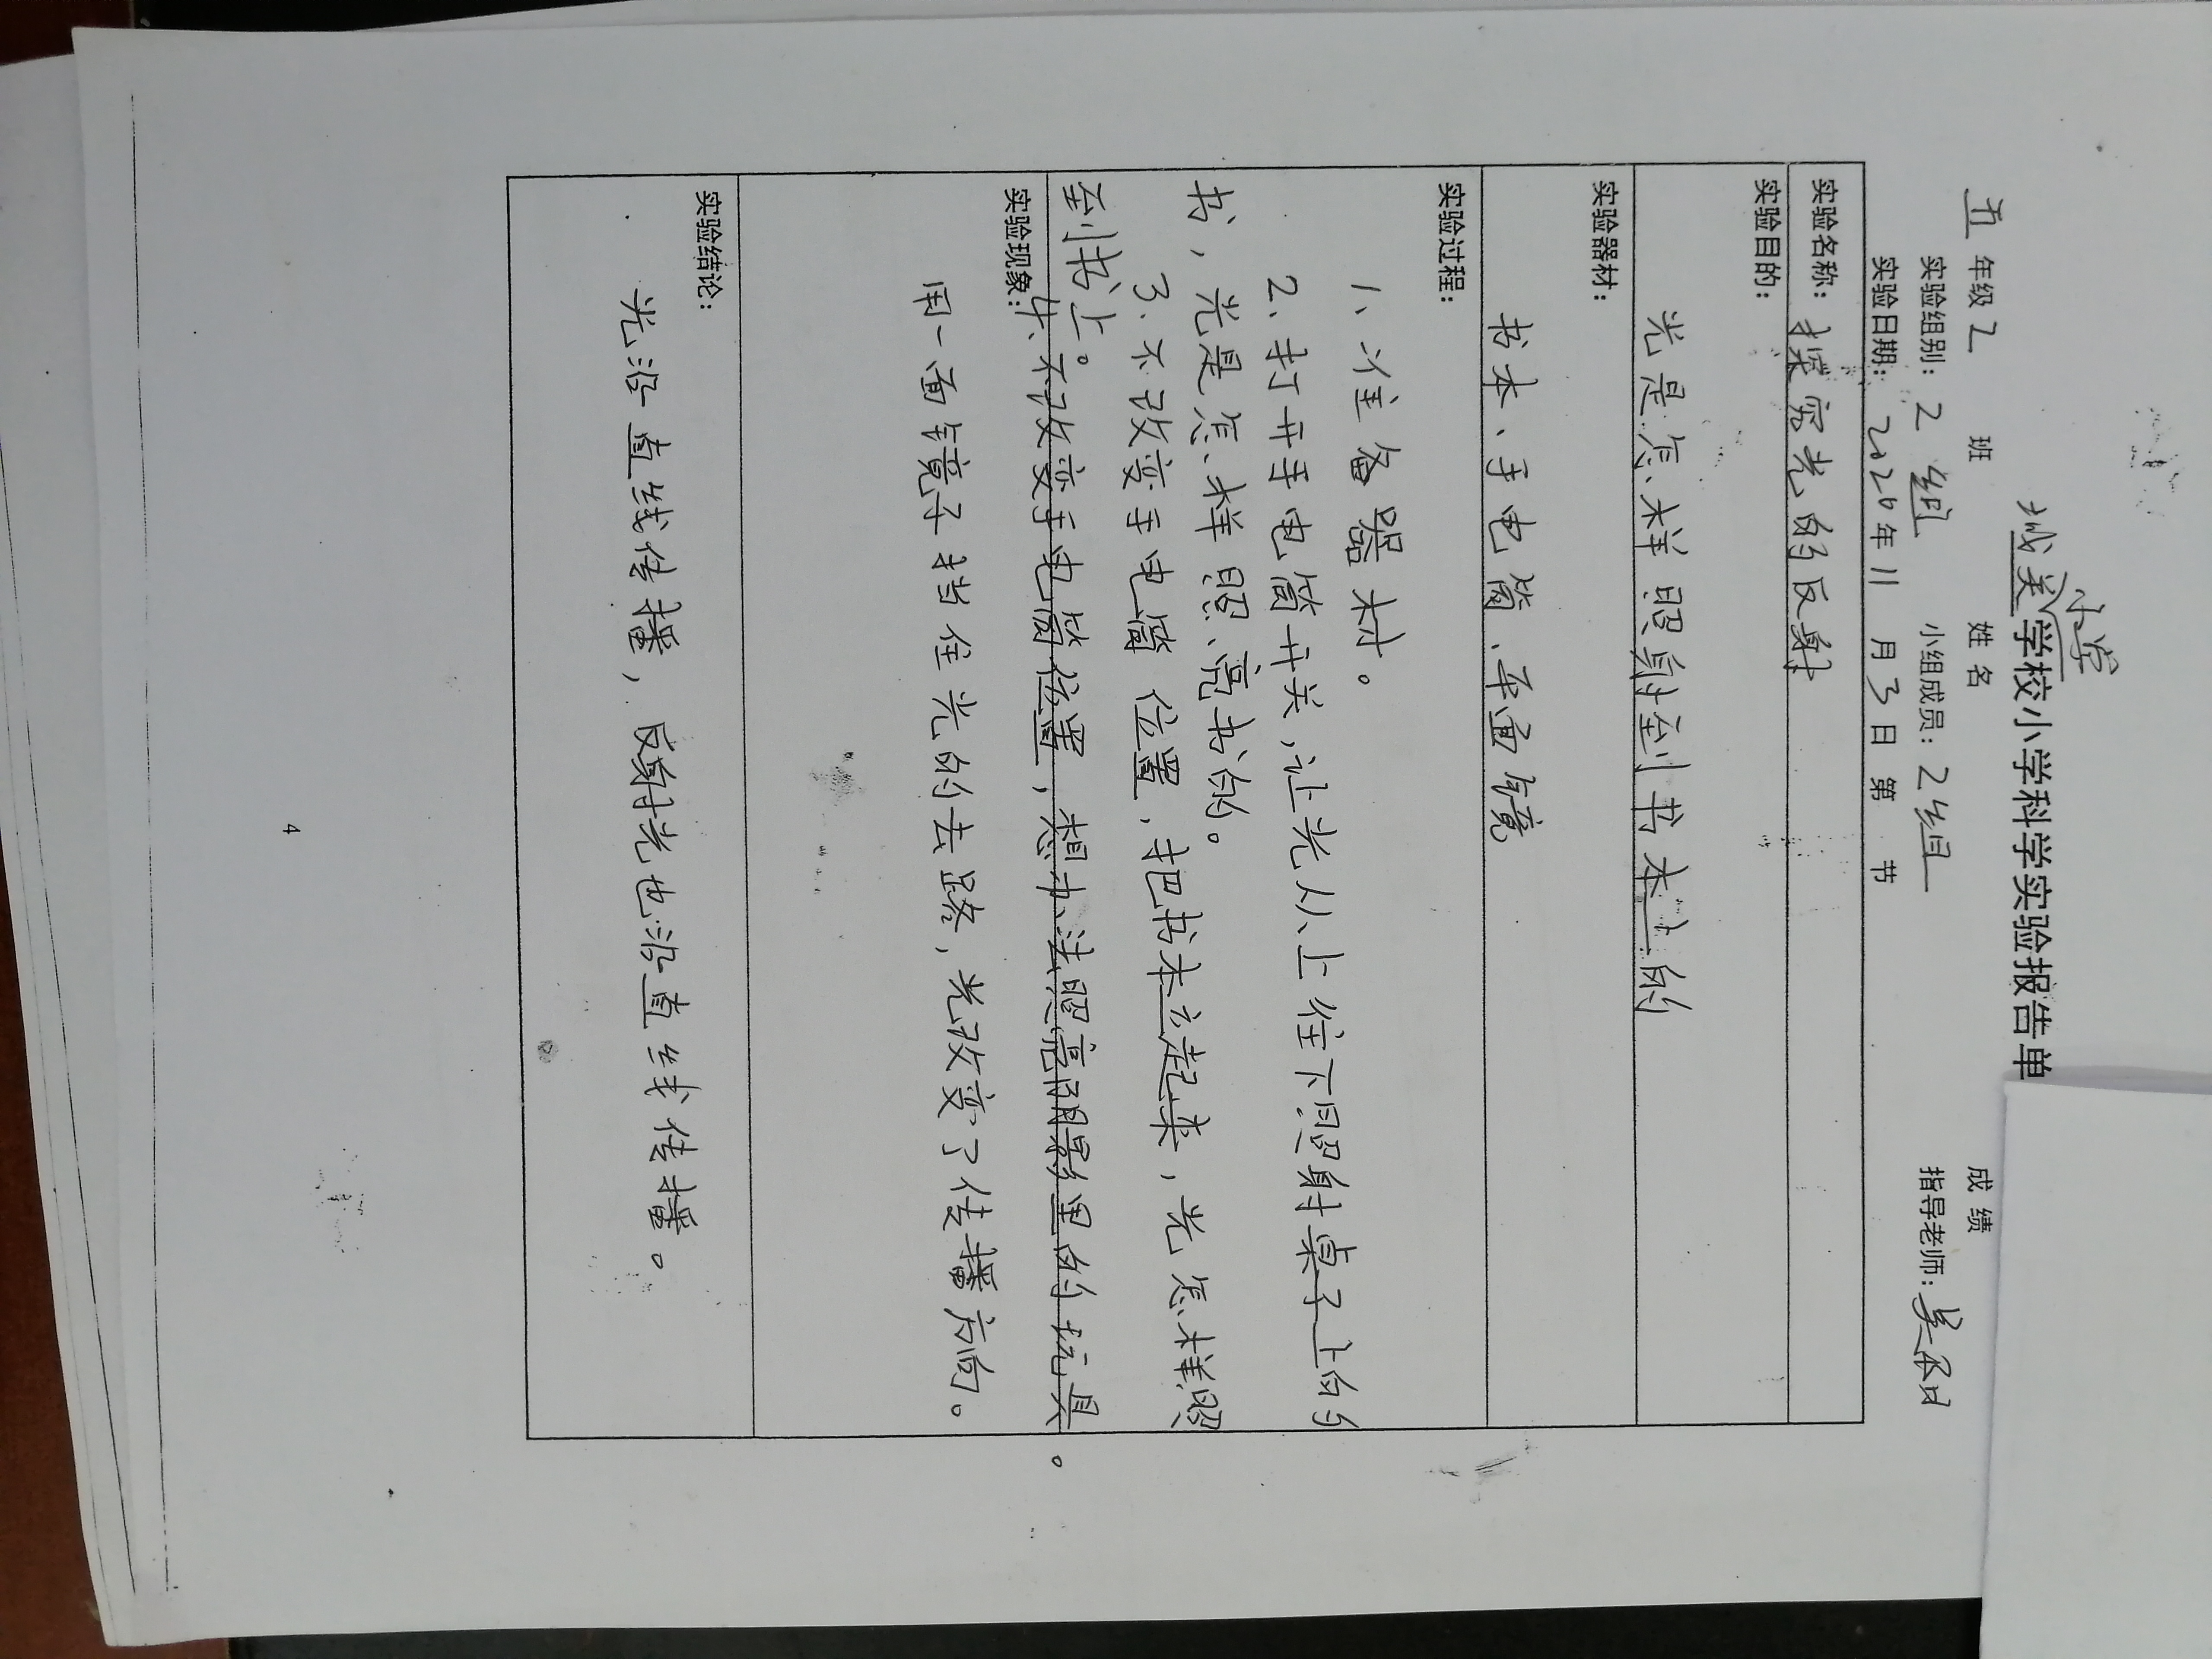 小学
城关学校小学科学实验报告单
五年级 2 班 姓名 成绩
实验组别：2 组 小组成员：2组 指导老师：吴
实验日期：2020年 11 月 3 日 第 节
实验名称：探究光的反射
实验目的：
光是怎样照射到书本上的
实验器材：
书本、手电筒、平面镜
实验过程：
1、准备器材。
2、打开手电筒开关，让光从上往下照射桌子上的
书，光是怎样照亮书的。
3、不改变手电筒位置，把书本立起来，光怎样照
到书上。
4、不改变手电筒位置，想办法照亮阴影里的玩具。
实验现象：
用一面镜子挡住光的去路，光改变了传播方向。
实验结论：
光沿直线传播，反射光也沿直线传播。
4